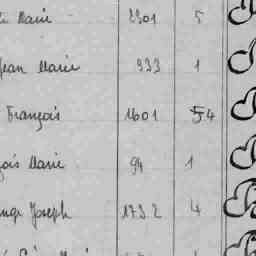 Marie 2301 5
Jean Marie 933 1
François 1601 54
çois Marie 94 1
ange Joseph 1732 4